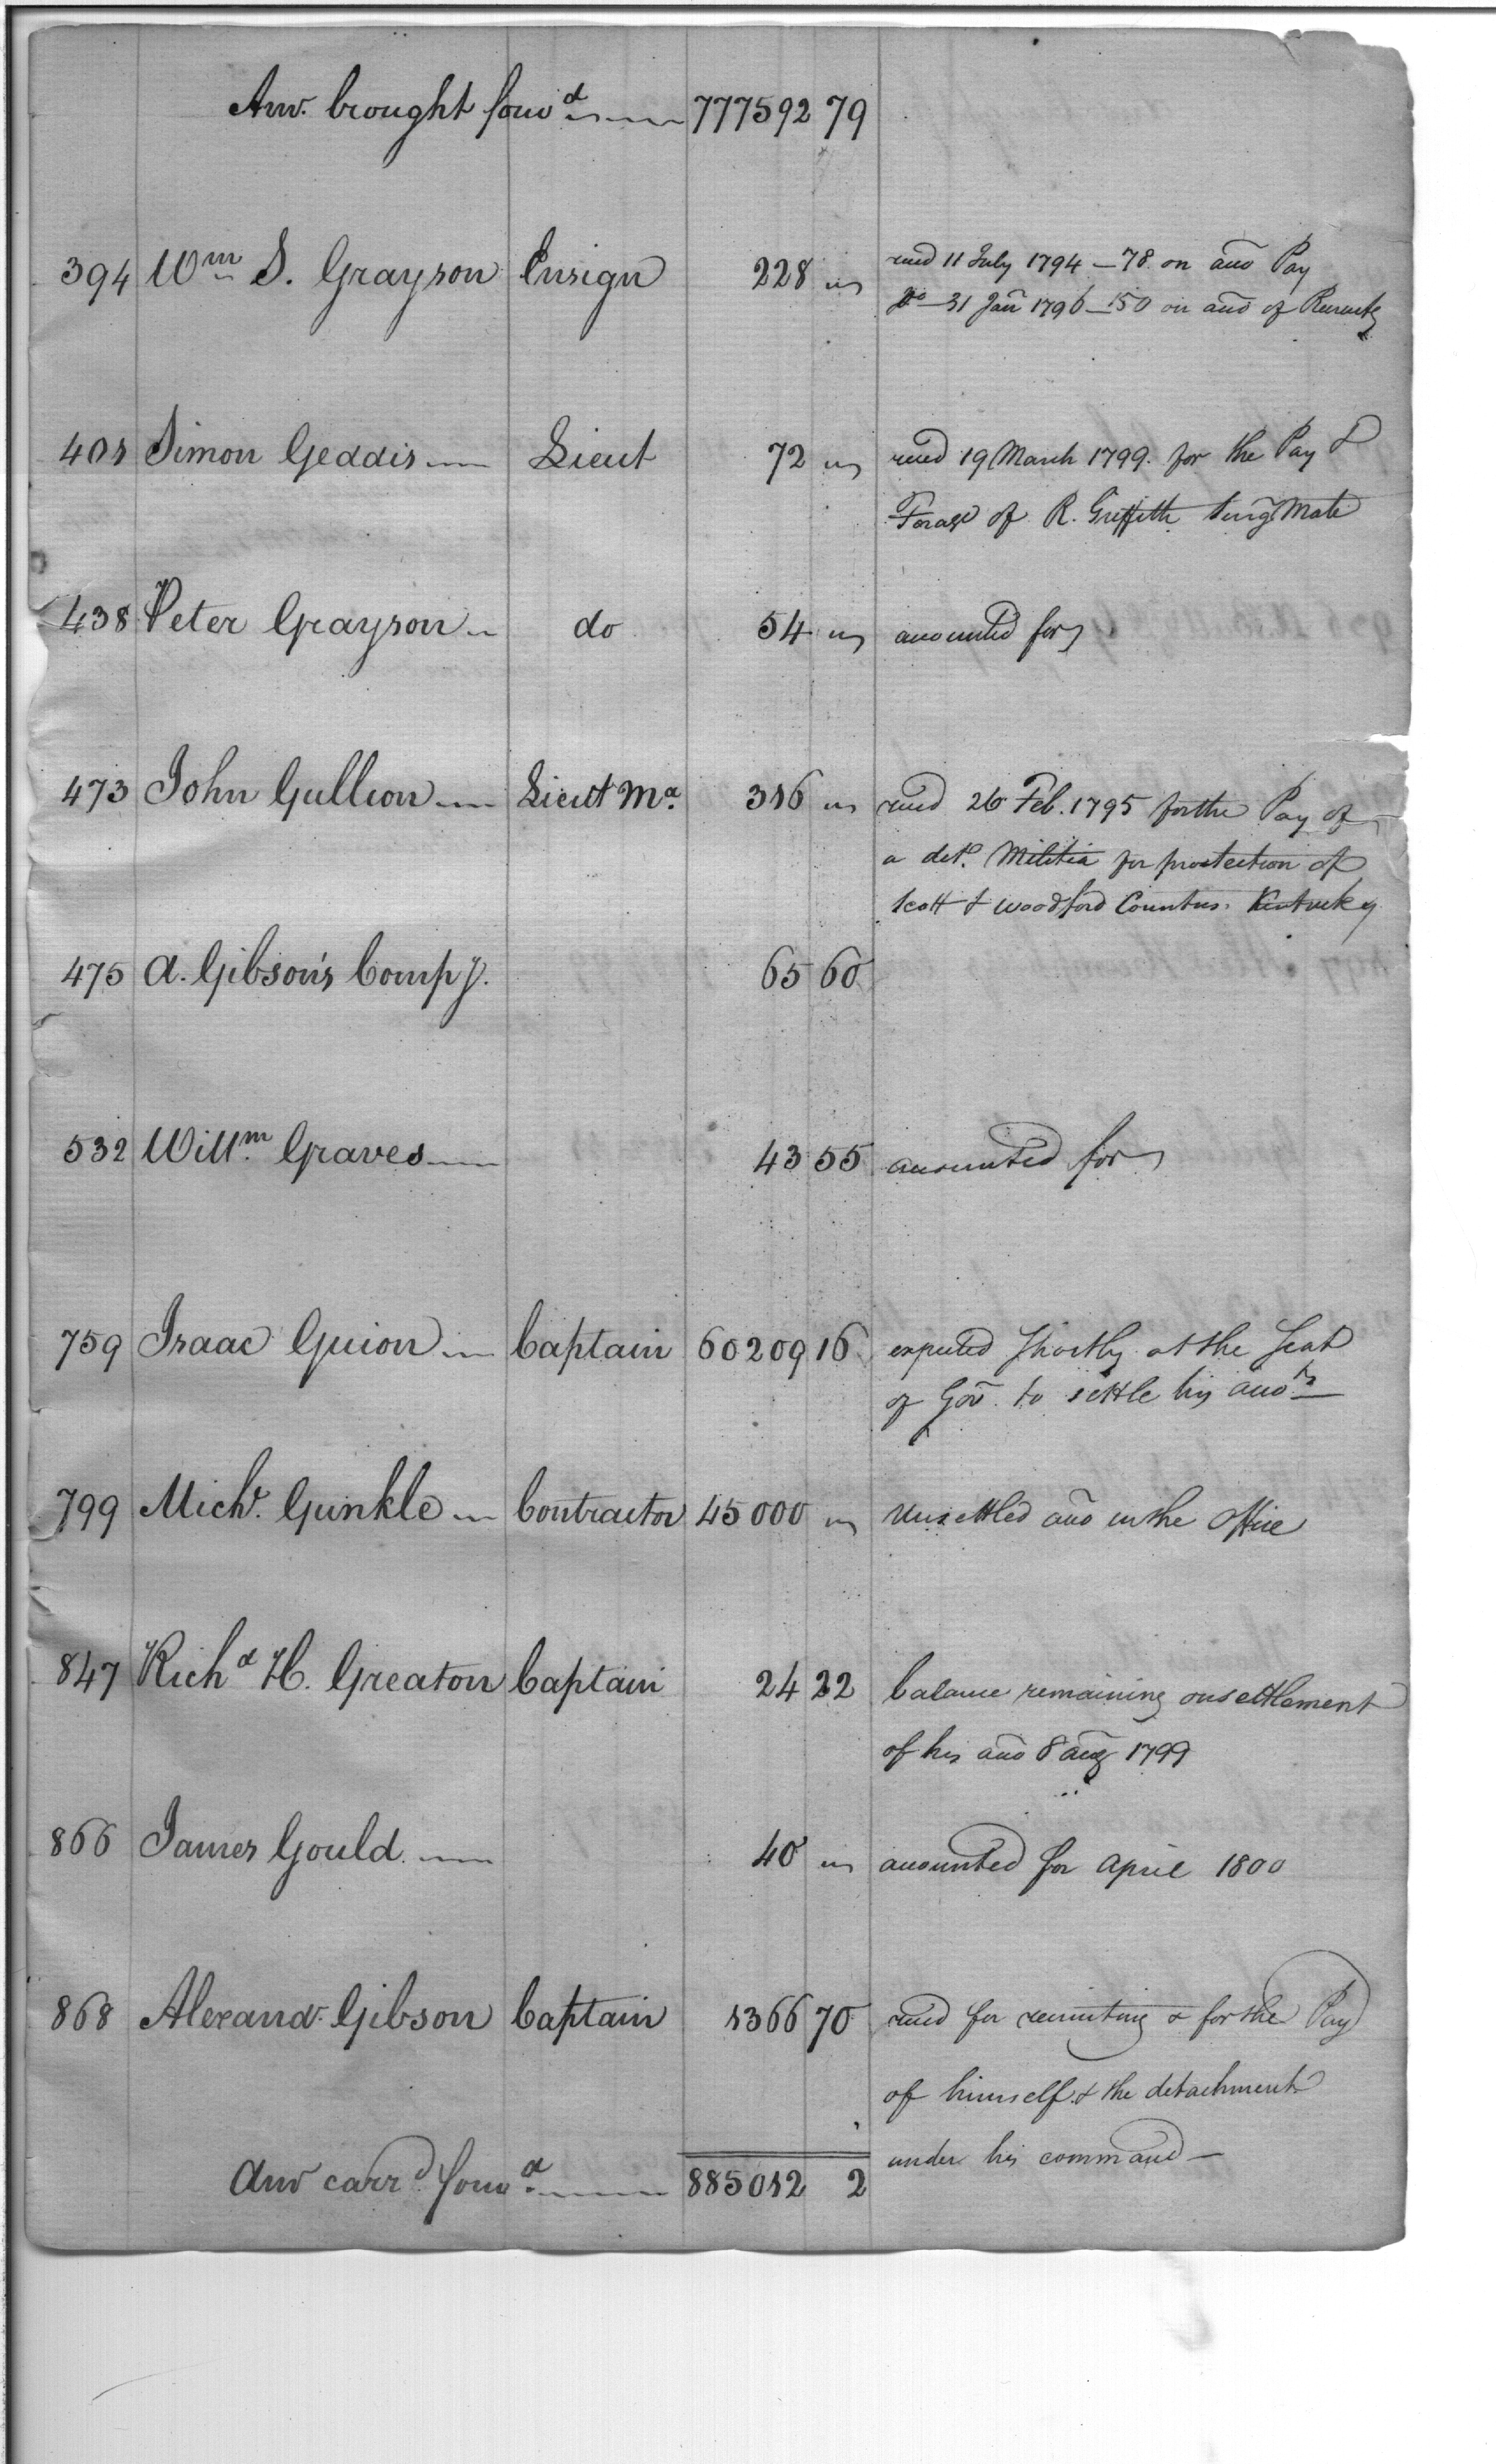 Amo. brought forwd 777592 79
394 Wm S. Grayson Ensign 228 " recd 11 July 1794 — 78 on acco Pay
Do — 31 Jan 1796 — 150 on acco of Recruitg
401 Simon Geddis Lieut 72 " recd 19 March 1799. for the Pay &
Forage of R. Griffith Surgs Mate
438 Peter Grayson do 54 " accounted for
473 John Gullion Lieut Ma. 316 " recd 26 Feb. 1795 for the Pay of
a det. Militia for protection of
Scott & Woodford Counties. Kentucky
475 A. Gibson's Compy. 65 60
532 Willm. Graves 43 55 accounted for
759 Isaac Guion Captain 60209 16 expected shortly at the Seat
of Gov. to settle his accots
799 Michl. Gunkle Contractor 45000 " Unsettled acco in the Office
847 Richd H. Greaton Captain 24 22 balance remaining on settlement
of his acco 8 Aug 1799
866 James Gould 40 " accounted for April 1800
868 Alexandr. Gibson Captain 1366 70 recd for recruiting & for the Pay
of himself & the detachment
under his command —
Amo carrd. forwd. 885012 2